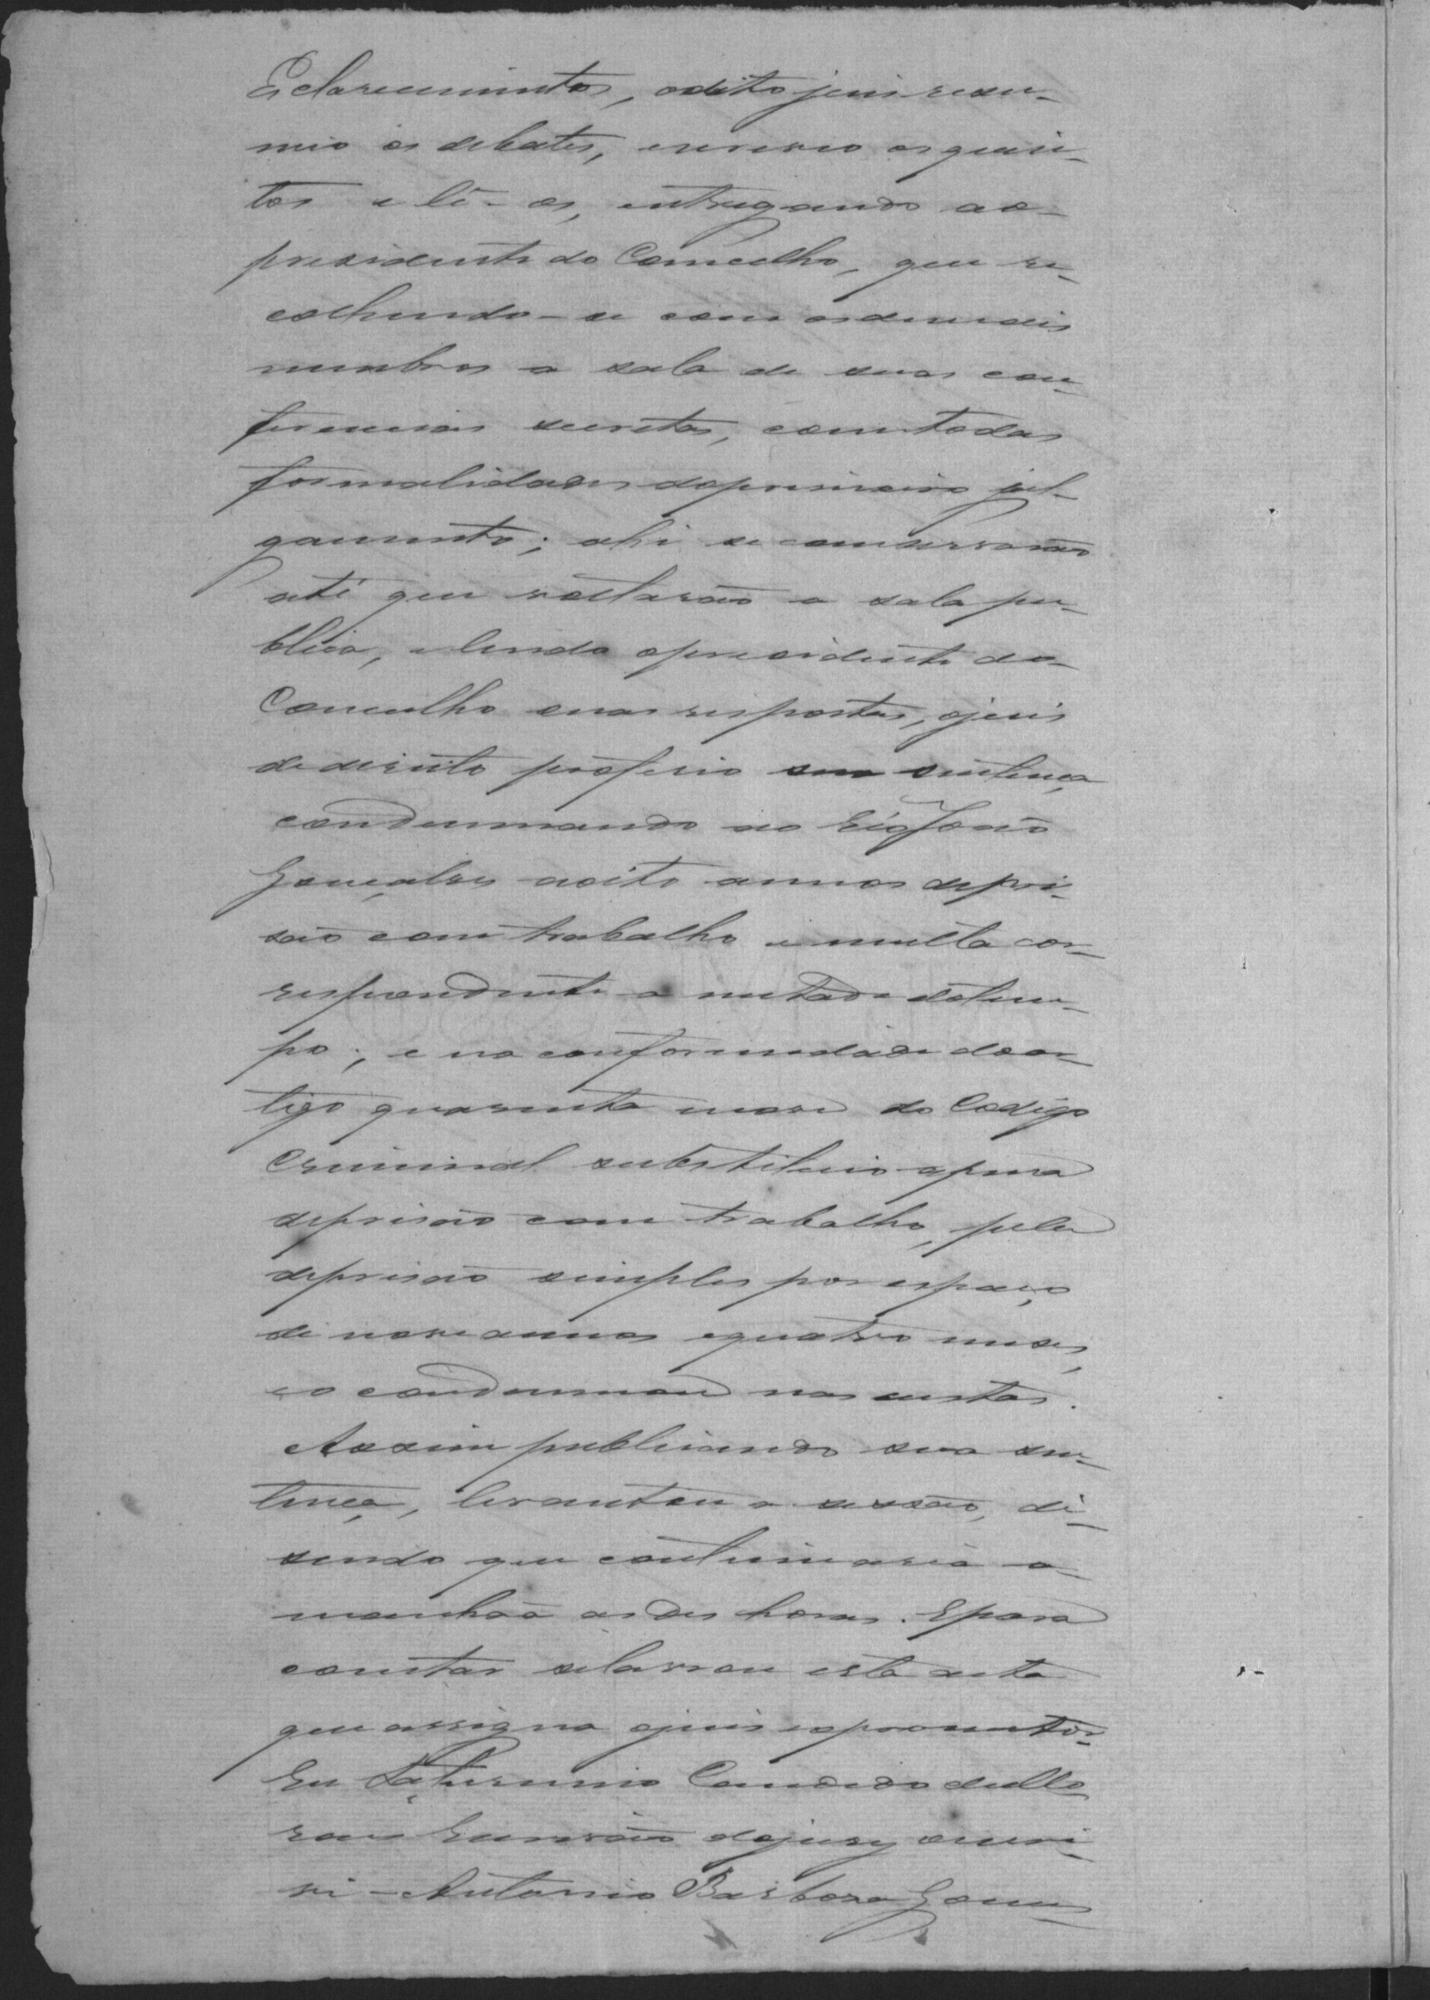 Esclarecimentos, o dito juis resu-
mio os debates, escreveo os quesi-
tos e lê-os, entregando ao
presidente do Concelho, que re-
colhendo-se com os demais
membros a sala de suas con-
ferencias secretas, com todas
formalidades do primeiro jul-
gamento; ahi se conservarão
até que voltarão a sala pu-
blica, e lendo o presidente do
Concelho suas respostas, o juis
de direito proferio sua sentença
condemnando ao Réo João
Gonçalves a oito annos de pri-
são com trabalho e multa cor-
respondente a metade do tem-
po; e na conformidade do ar-
tigo quarenta nove do Codigo
Criminal substituio a pena
de prisão com trabalho, pela
de prisão simples por espaço
de nove annos e quatro meses,
e o condemnou nas custas.
Assim publicando sua sen-
tença, levantou a sessão, di-
sendo que continuaria a-
manhãa as des horas. E para
constar se lavrou esta acta
que assigna o juis e o promotor.
Eu Saturnino Candido de
Escrivão do jury escre-
vi - Antonio Barbosa Gomes